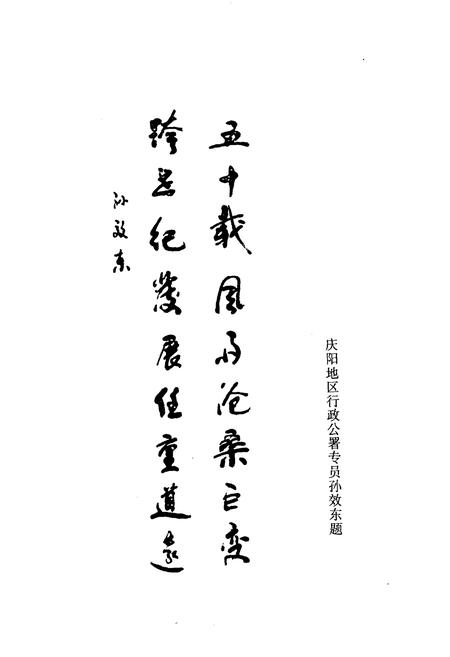 庆阳地区行政公署专员孙效东题
五十载风雨沧桑巨变
跨世纪發展任重道遠
孙效东